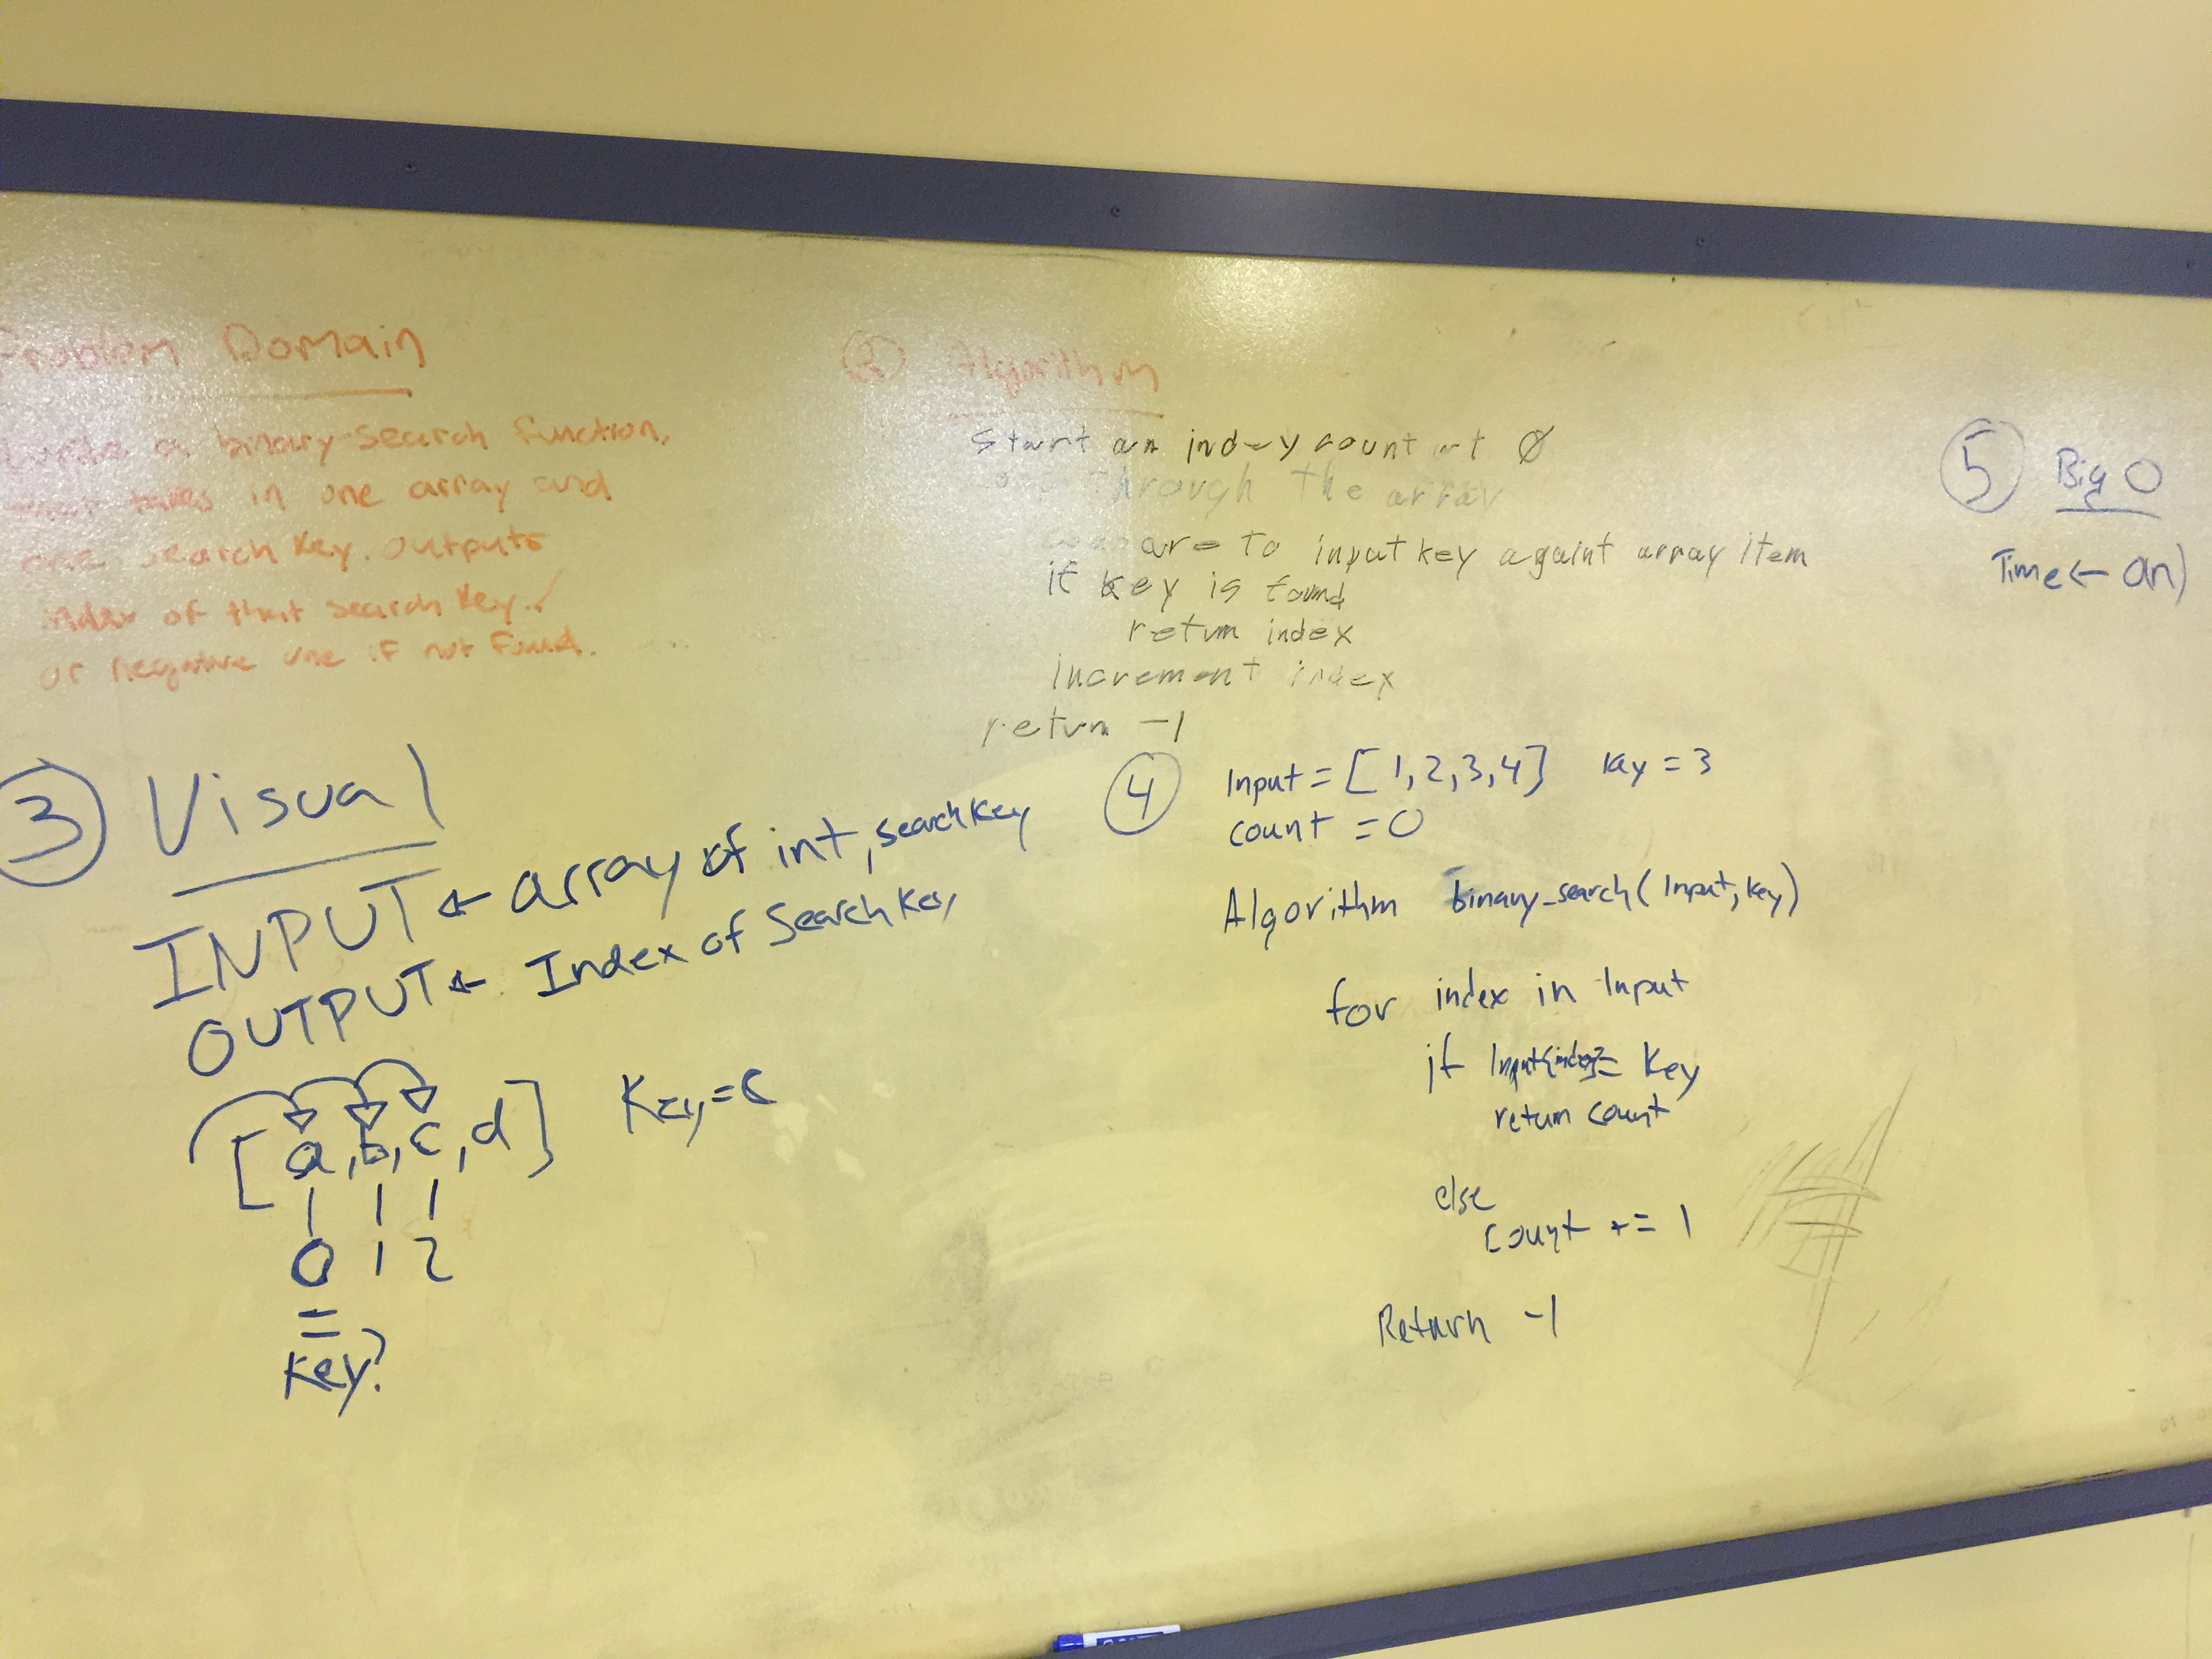 Problem Domain
write a binary search function,
that takes in one array and
one search key. outputs
index of that search key
or negative one if not found.
② Algorithm
Start an index count at 0
through the array
compare to input key againt array item
if key is found
return index
increment index
return -1
③ Visual
INPUT ← array of int, searchkey
OUTPUT ← Index of Search Key
[a, b, c, d] Key=c
0 1 2
=
Key?
④ Input = [1,2,3,4] key = 3
count = 0
Algorithm binary_search(Input, key)
for index in Input
if Input[index] = Key
return count
else
count += 1
Return -1
⑤ Big O
Time ← O(n)